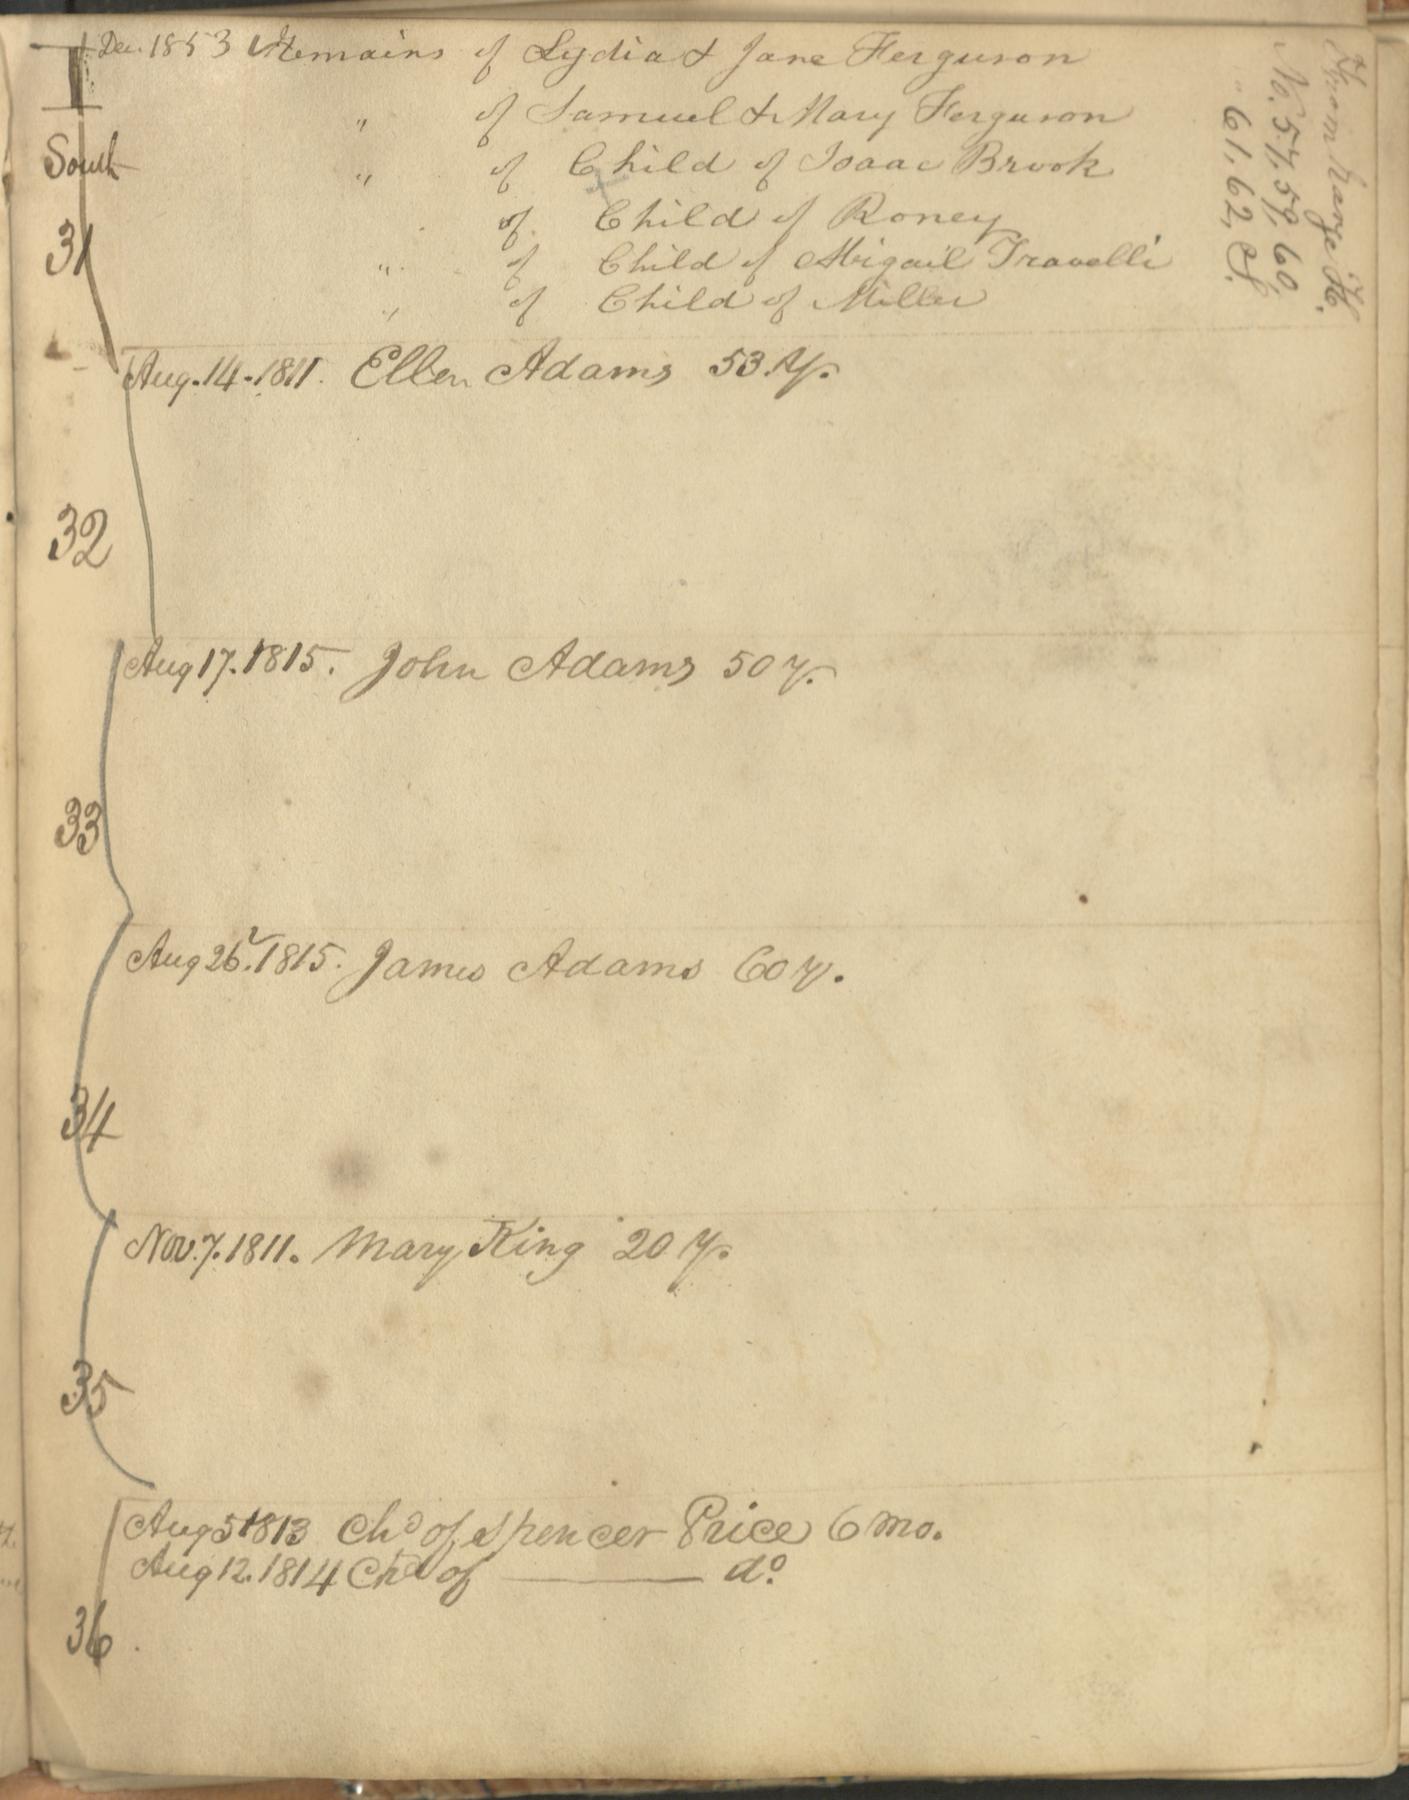 I
Dec. 1853 Remains of Lydia & Jane Ferguson
" of Samuel & Mary Ferguson
South
" of Child of Isaac Brook
of Child of Roney
31
" of Child of Abigail Travelli
" of Child of Miller
From Range H.
No. 57, 59, 60,
" 61, 62, S.
Aug. 14. 1811. Ellen Adams 53 y.
32
Aug 17. 1815. John Adams 50 y.
33
Aug 26. 1815. James Adams 60 y.
34
Nov. 7. 1811. Mary King 20 y.
35
Aug 5 1813 Chd of Spencer Price 6 mo.
Aug 12. 1814 Chd of ——— do.
36